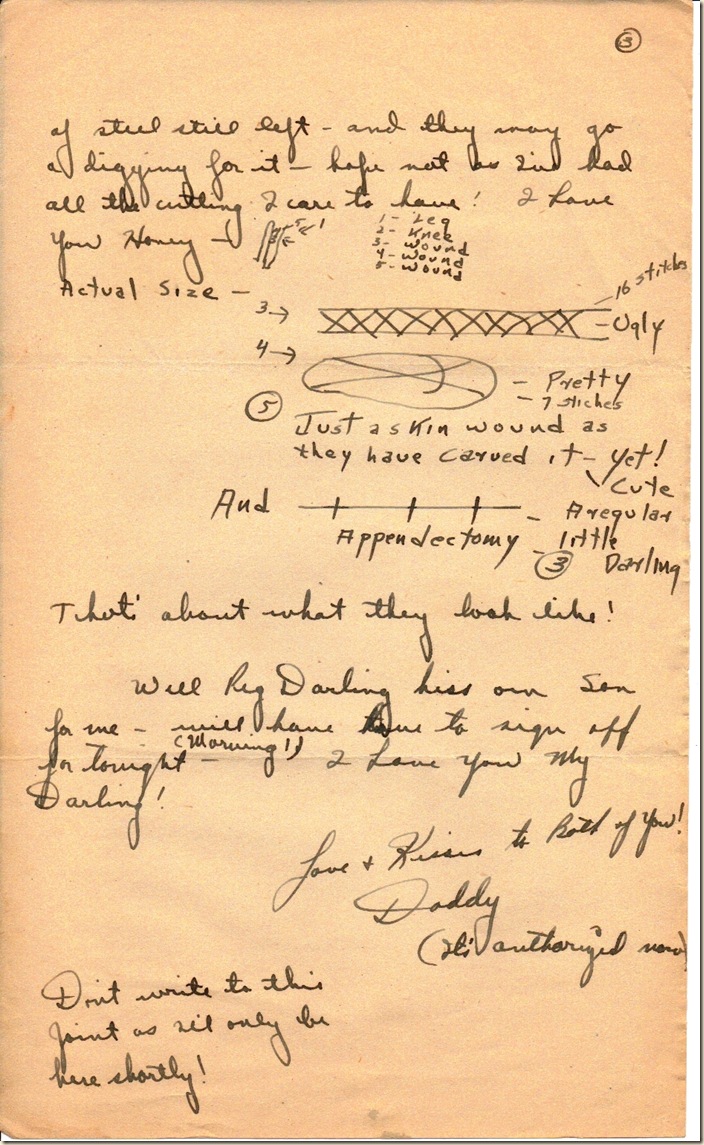 3
of steel still left - and they may go
a digging for it - hope not as I've had
all the cutting I care to have! I love
You Honey -
1 - Leg
2 - Knee
3 - wound
4 - wound
5 - wound
Actual Size -
16 stitches
3 →
- Ugly
4 →
- Pretty
- 7 stiches
5 Just a skin wound as
they have carved it - yet!
Cute
And
- A regular
Appendectomy
- little
3 Darling
That's about what they look like!
Will Peg Darling kiss our Son
for me - will have to sign off
(Morning!)
for tonight - I Love You My
Darling!
Love + Kisses to Both of You!
Daddy
(It's authorized now)
Don't write to this
joint as I'll only be
here shortly!